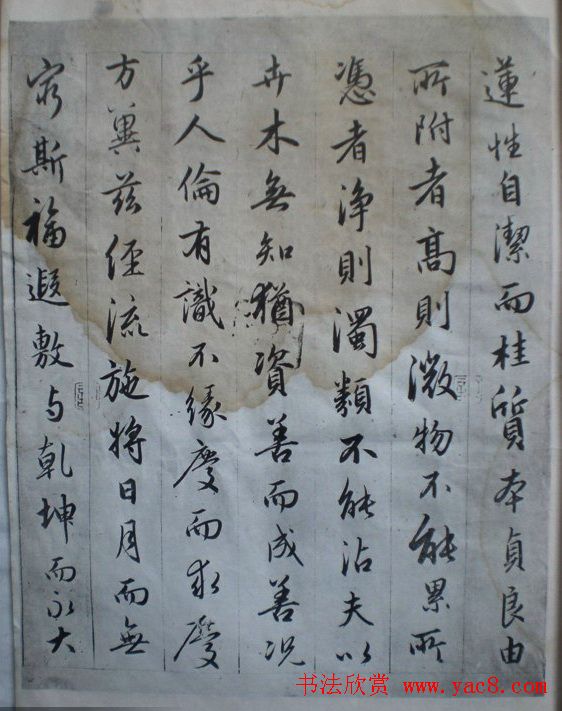 蓮性自潔而桂質本貞良由
所附者高則微物不能累所
憑者浄則濁類不能沾夫以
卉木無知猶資善而成善況
乎人倫有識不緣慶而求慶
方冀兹経流施將日月而無
窮斯福遐敷与乾坤而永大
书法欣赏 www.yac8.com